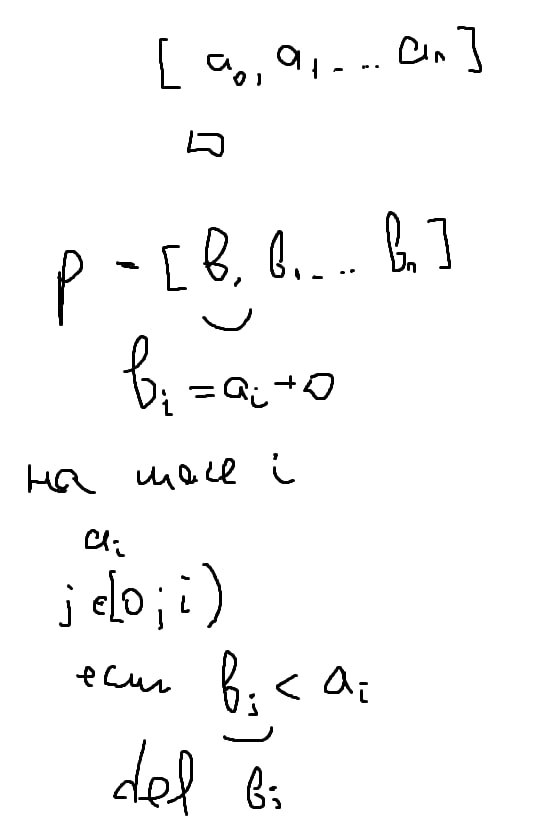 [ a₀, a₁ ... aₙ ]
D
p - [ b, b₁ ... bₙ ]
bᵢ = aᵢ + D
на шаге i
aᵢ
j ∈ [0; i)
если bⱼ < aᵢ
del bⱼ